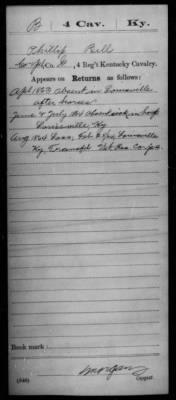 B | 4 Cav. | Ky.
Phillip Bell
Co. D, 4 Reg't Kentucky Cavalry.
Appears on Returns as follows:
Apl 1863 Absent in Louisville
after horses
June & July 1864 Absent sick in hosp
Louisville, Ky
Aug 1864 Loss, Feb
Ky. Transf'd Vet Res. Corps.
Book mark:
Morgan
(546) Copyist.